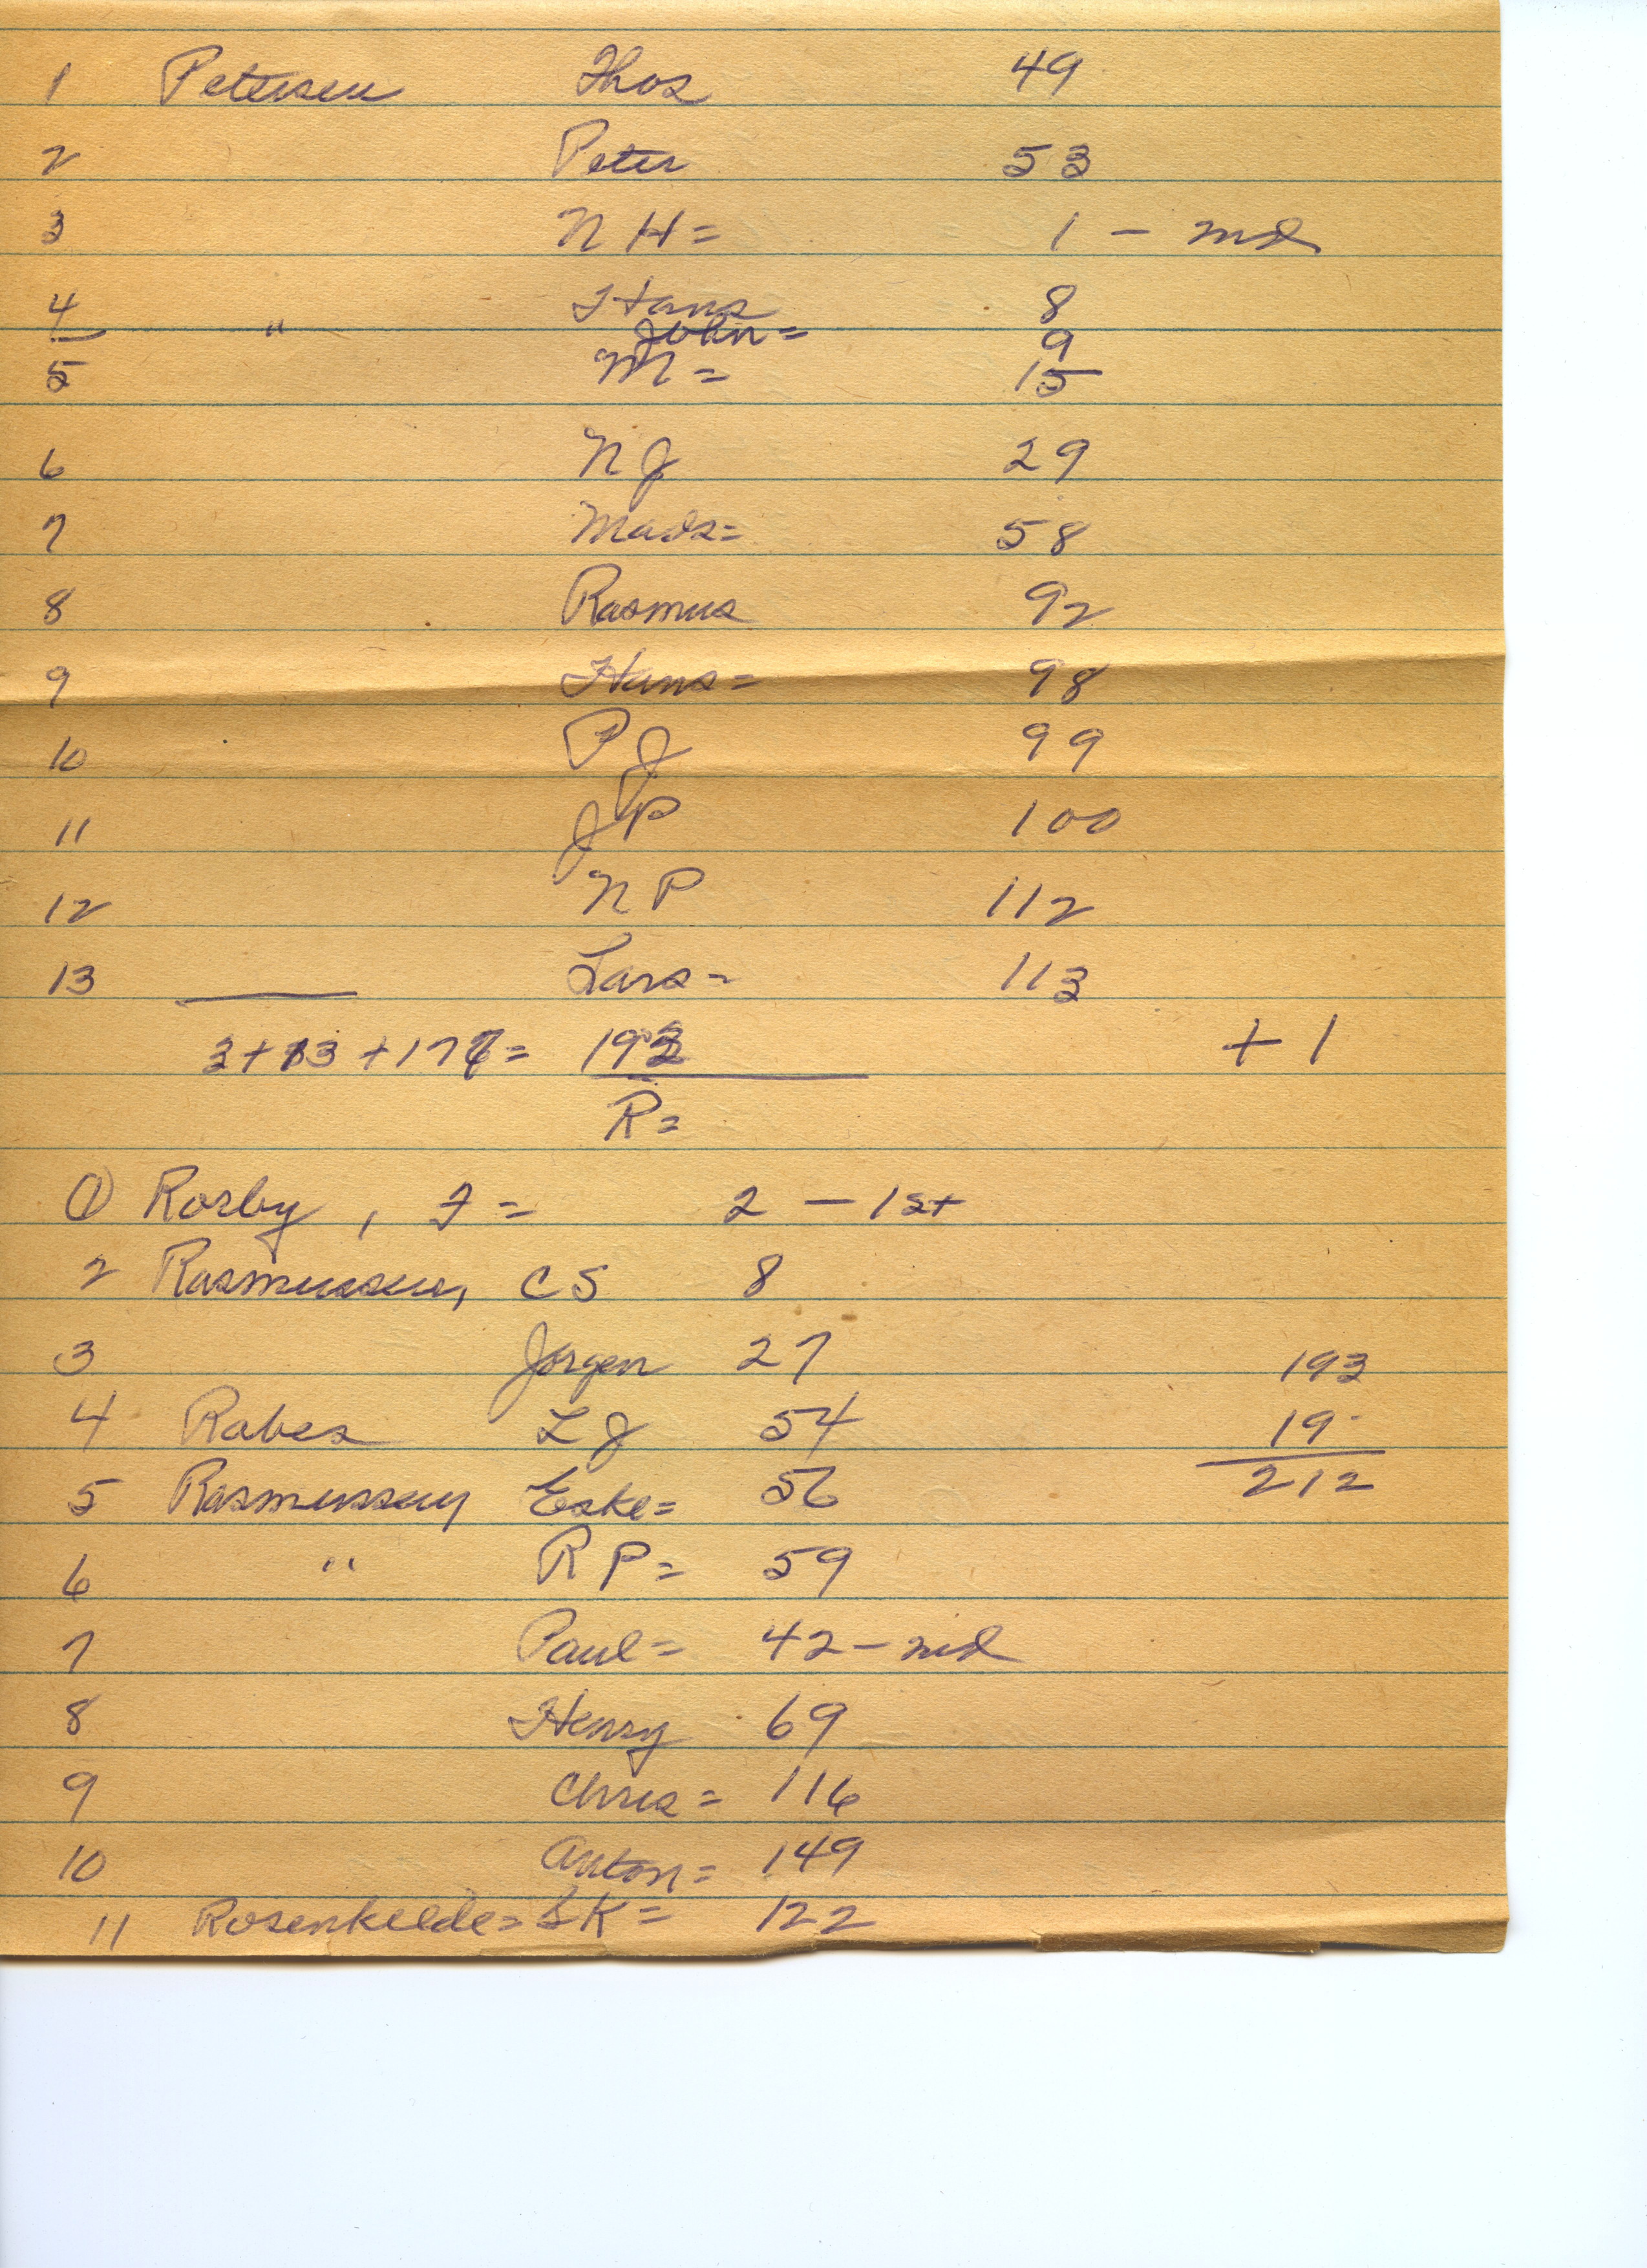 1 Petersen Thos 49
2 Peter 53
3 N H = 1 - 2nd
4 Hans 8
" John = 9
5 M = 15
6 N J 29
7 Mads = 58
8 Rasmus 92
9 Hans = 98
10 P J 99
11 J P 100
12 N P 112
13 Lars - 113
3 + 13 + 177 = 193 + 1
R =
1 Rorby, F = 2 - 1st
2 Rasmussen, C S 8
3 Jorgen 27 193
4 Rabes L J 54 19
212
5 Rasmussen Eske = 56
6 " R P = 59
7 Paul = 42 - 2nd
8 Henry 69
9 Chris = 116
10 Anton = 149
11 Rosenkilde = S K = 122